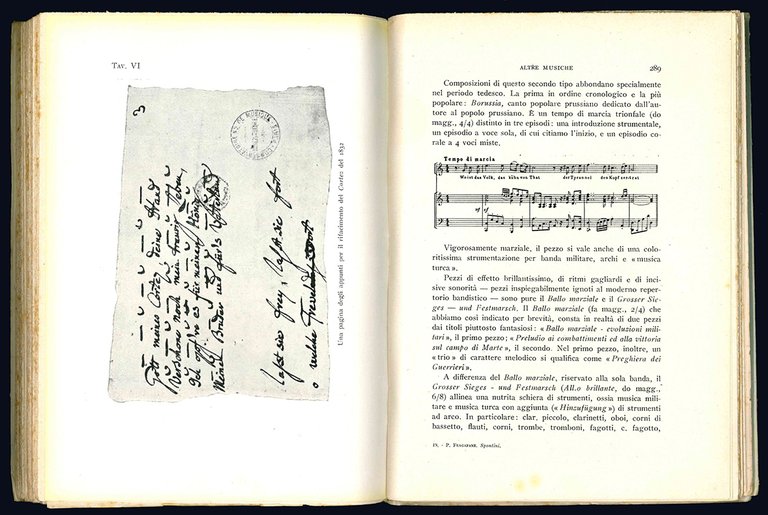 Tav. VI
3
Una pagina degli appunti per il rifacimento del Cortez del 1832
ALTRE MUSICHE 289
Composizioni di questo secondo tipo abbondano specialmente
nel periodo tedesco. La prima in ordine cronologico e la più
popolare: Borussia, canto popolare prussiano dedicato dall'au-
tore al popolo prussiano. È un tempo di marcia trionfale (do
magg., 4/4) distinto in tre episodi: una introduzione strumentale,
un episodio a voce sola, di cui citiamo l'inizio, e un episodio co-
rale a 4 voci miste.
Tempo di marcia
Wo ist das Volk, das kühn von That der Tyrannei den Kopf zertrat
Vigorosamente marziale, il pezzo si vale anche di una colo-
ritissima strumentazione per banda militare, archi e «musica
turca».
Pezzi di effetto brillantissimo, di ritmi gagliardi e di inci-
sive sonorità — pezzi inspiegabilmente ignoti al moderno reper-
torio bandistico — sono pure il Ballo marziale e il Grosser Sie-
ges — und Festmarsch. Il Ballo marziale (fa magg., 2/4) che
abbiamo così indicato per brevità, consta in realtà di due pezzi
dai titoli piuttosto fantasiosi: «Ballo marziale - evoluzioni mili-
tari», il primo pezzo; «Preludio ai combattimenti ed alla vittoria
sul campo di Marte», il secondo. Nel primo pezzo, inoltre, un
«trio» di carattere melodico si qualifica come «Preghiera dei
Guerrieri».
A differenza del Ballo marziale, riservato alla sola banda, il
Grosser Sieges - und Festmarsch (All.o brillante, do magg.,
6/8) allinea una nutrita schiera di strumenti, ossia musica mili-
tare e musica turca con aggiunta («Hinzufügung») di strumenti
ad arco. In particolare: clar, piccolo, clarinetti, oboi, corni di
bassetto, flauti, corni, trombe, tromboni, fagotti, c. fagotto,
19. - P. Fragapane, Spontini.